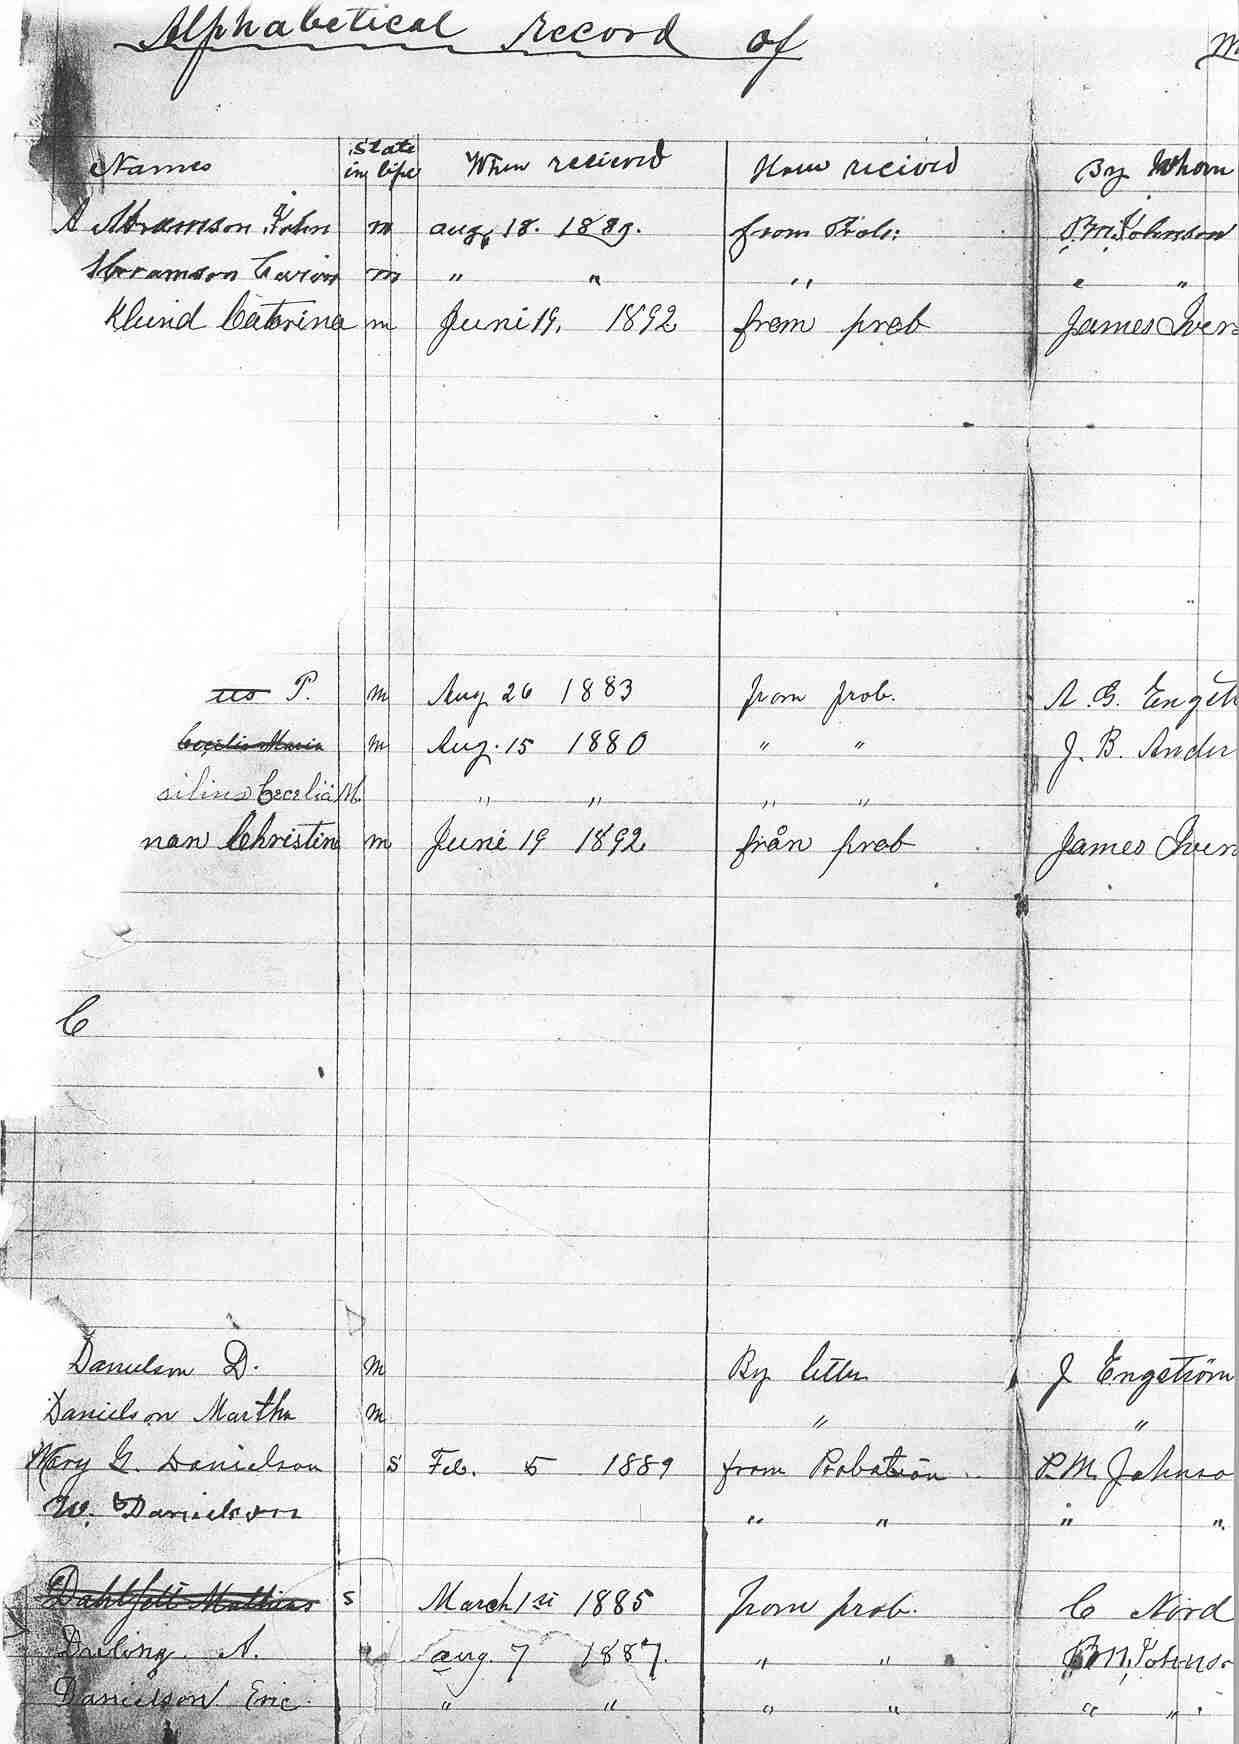 Alphabetical record of
Names State in life When recieved How recieved By Whom
A Abramson John m aug. 18. 1889. from Prob: P.M. Johnson
Abramson Carin m " " " " "
klund Catarina m Juni 19. 1892 from prob James Iver
P. m Aug 26 1883 from prob. A. G. Engst
Cecelia Maria m Aug. 15 1880 " " J. B. Ander
silius Cecelia M. " " " "
nan Christin m Juni 19 1892 från prob James Iver
C
Danielson D. m By letter J Engström
Danielson Martha m " "
Mary G. Danielson s Feb. 5 1889 from Probation P. M. Johnso
W. Danielson " " " "
Mathias s March 1st 1885 from prob. C Nord
A. aug. 7 1887. " " P.M. Johnso
Danielson Eric " " " " " "